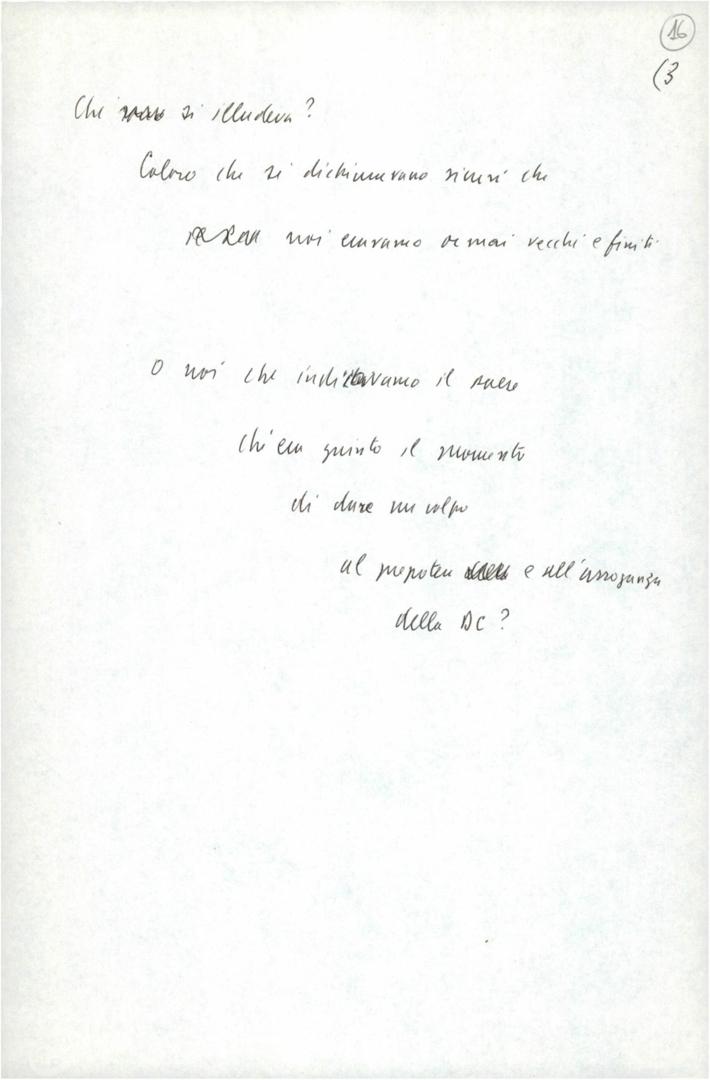 16
(3
Chi si illudeva?
Coloro che si dichiaravano sicuri che
noi eravamo ormai vecchi e finiti
O noi che indicavamo il
ch'era giunto il momento
di dare un colpo
al prepotere e all'arroganza
della DC?